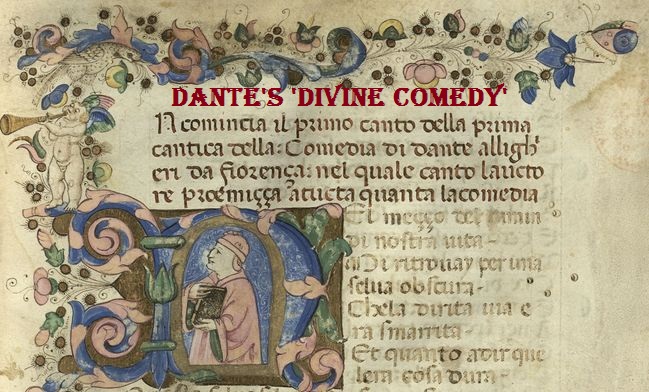 DANTE'S 'DIVINE COMEDY'
In comincia il primo canto della prima
cantica della: Comedia di dante alligh
eri da fiorença: nel quale canto laucto
re proemiçça atucta quanta lacomedia
NEl meçço del camin
di nostra vita -
Mi ritrouay per una
selua obscura -
Chela dirita uia e
ra smarrita -
Et quanto adir que
lera cosa dura -